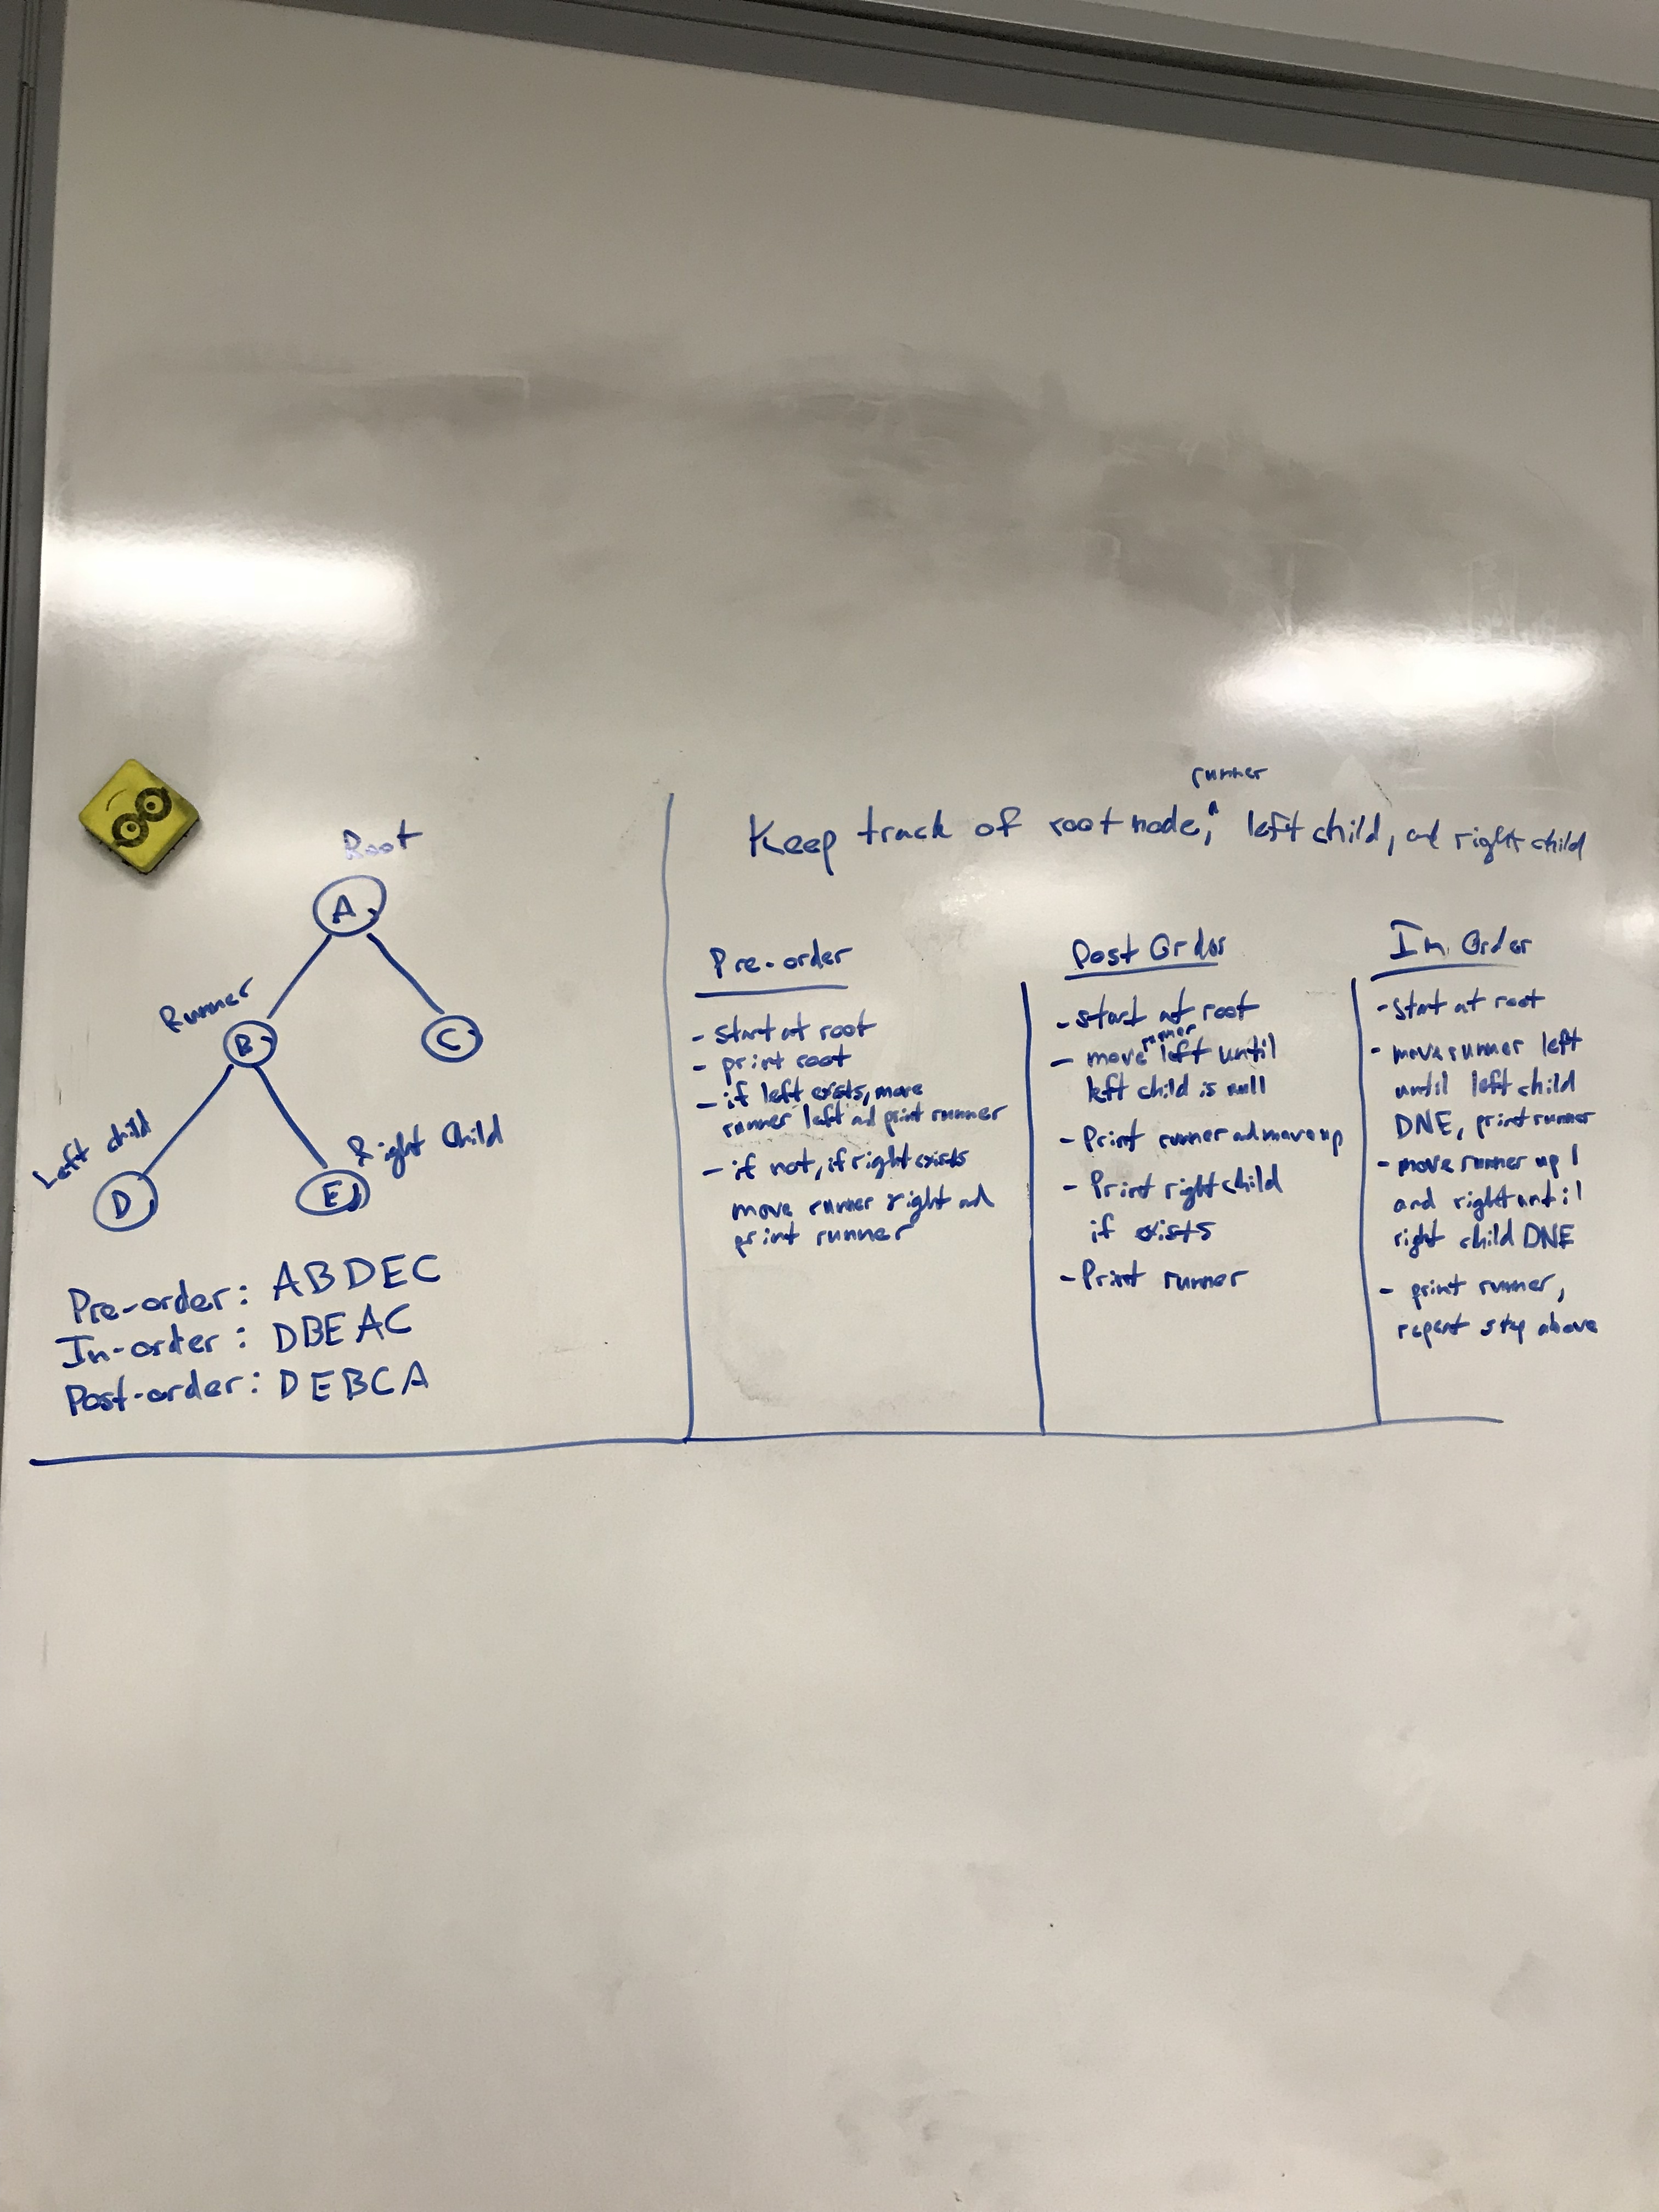 Root
A
Runner
B
C
Left child
Right Child
D
E
Pre-order: ABDEC
In-order: DBEAC
Post-order: DEBCA
runner
Keep track of root node, ^ left child, and right child
Pre-order
- start at root
- print root
- if left exists, move
runner left and print runner
- if not, if right exists
move runner right and
print runner
Post Order
- start at root
runner
- move left until
left child is null
- Print runner and move up
- Print right child
if exists
- Print runner
In Order
- start at root
- move runner left
until left child
DNE, print runner
- move runner up 1
and right until
right child DNE
- print runner,
repeat step above